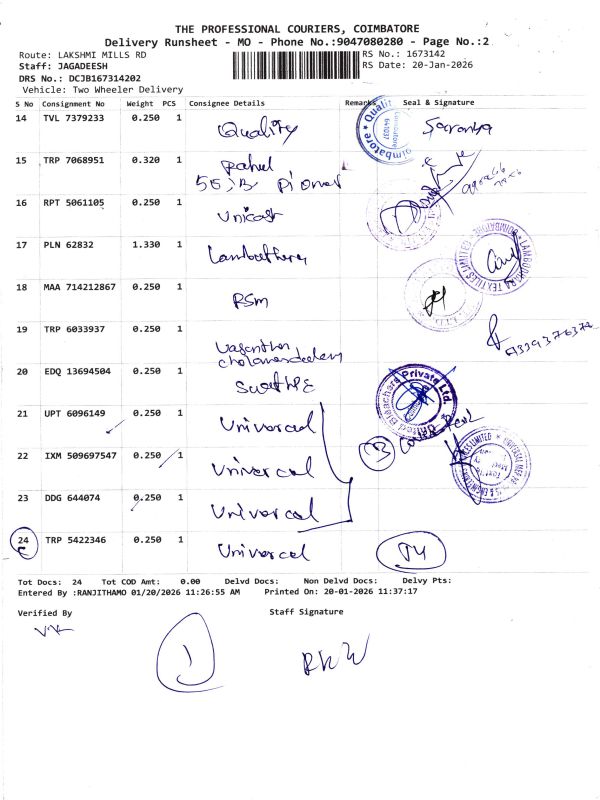 THE PROFESSIONAL COURIERS, COIMBATORE
Delivery Runsheet - MO - Phone No.:9047080280 - Page No.:2
Route: LAKSHMI MILLS RD RS No.: 1673142
Staff: JAGADEESH RS Date: 20-Jan-2026
DRS No.: DCJB167314202
Vehicle: Two Wheeler Delivery
S No Consignment No Weight PCS Consignee Details Remarks Seal & Signature
14 TVL 7379233 0.250 1 Quality
15 TRP 7068951 0.320 1 Rahul
16 RPT 5061105 0.250 1 Unicast
17 PLN 62832 1.330 1
18 MAA 714212867 0.250 1 PSM
19 TRP 6033937 0.250 1
20 EDQ 13694504 0.250 1
21 UPT 6096149 0.250 1 Universal
22 IXM 509697547 0.250 1 Universal
23 DDG 644074 0.250 1 Universal
24 TRP 5422346 0.250 1 Universal
Tot Docs: 24 Tot COD Amt: 0.00 Delvd Docs: Non Delvd Docs: Delvy Pts:
Entered By :RANJITHAMO 01/20/2026 11:26:55 AM Printed On: 20-01-2026 11:37:17
Verified By Staff Signature